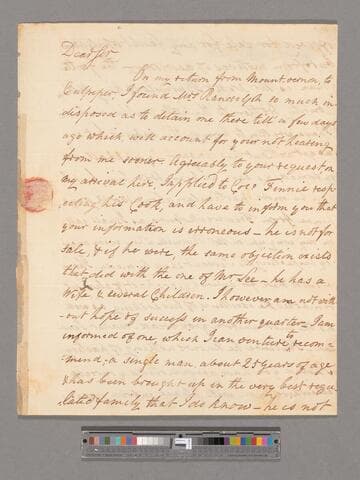 Dear Sir
On my return from Mount vernon, to
Culpeper I found Mrs Randolph so much in
disposed as to detain me there till a few days
ago which will account for your not hearing
from me sooner. Agreeably to your request, on
my arrival here, I applied to Colo Finnie resp
ecting his Cook, and have to inform you that
your information is erroneous – he is not for
sale, & if he were, the same objection exists
that did with the one of Mr Lee – he has a
Wife & several Children. I however am not with
out hope of success in another quarter – I am
informed of one, which I can venture to recom
mend; a single man about 25 years of age
& has been brought up in the very best regu
lated family that I do know – he is not